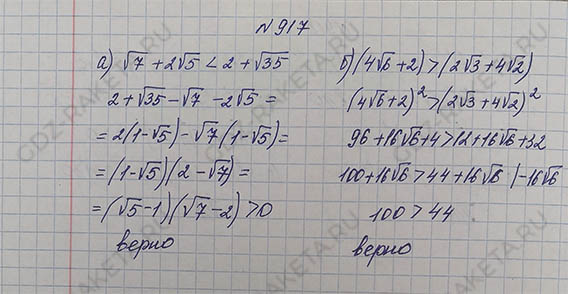 №917
а) √7 + 2√5 < 2 + √35
2 + √35 - √7 - 2√5 =
= 2(1-√5) - √7(1-√5) =
= (1-√5)(2-√7) =
= (√5-1)(√7-2) > 0
верно
б) (4√6 + 2) > (2√3 + 4√2)
(4√6 + 2)² > (2√3 + 4√2)²
96 + 16√6 + 4 > 12 + 16√6 + 32
100 + 16√6 > 44 + 16√6 | -16√6
100 > 44
верно
GDZ-RAKETA.RU
GDZ-RAKETA.RU
GDZ-RAKETA.RU